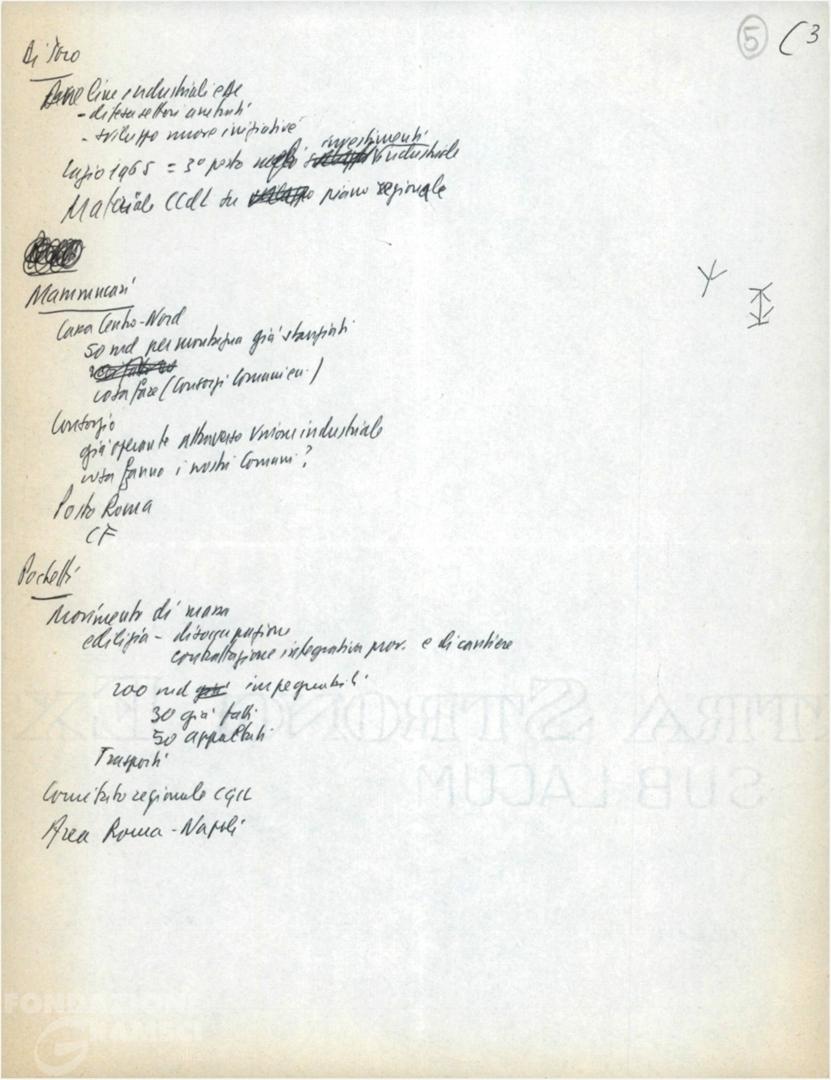 5 (3
Di Toro
line industriali
- difesa settori
- sviluppo nuove iniziative
investimenti
Lazio 1965 = 3° posto negli industriale
Materiale CCdL su piano regionale
Mammucari
Cassa Centro-Nord
50 md per montagna già stanziati
cosa fare (Consorzi Comuni ecc.)
Consorzio
già operante attraverso Unione industriale
cosa fanno i nostri Comuni?
Porto Roma
CF
Pochetti
Movimento di massa
edilizia - disoccupazione
contrattazione integrativa prov. e di cantiere
200 md impegnabili
30 già fatti
50 appaltati
Trasporti
Comitato regionale CGIL
Area Roma-Napoli
EXTRA STRONG
SUB LACUM
FONDAZIONE
GRAMSCI